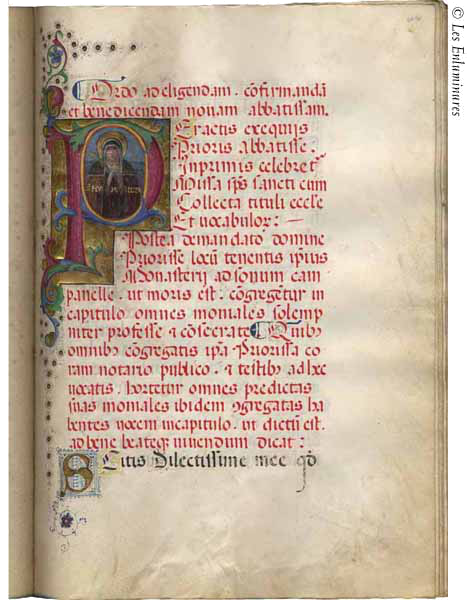 © Les Enluminures
Ordo ad eligendam. cōfirmandā
et benedicendam nouam abbatissam.
Peractis exequijs
Prioris abbatisse.
Inprimis celebret̄
Missa sp̄s sancti cum
Collecta tituli eccl̄e
Et uocabulor̄: —
Postea demandato domine
Priorisse locū tenentis ipīus
Monasterij ad sonum cam
panelle. ut moris est. cōgregētur in
capitulo omnes moniales solemp
niter professe & cōsecrate Quibꝰ
omnibꝰ cōgregatis ip̄a Priorissa co
ram notario publico. & testibꝰ ad hec
uocatis. hortetur omnes predictas
suas moniales ibidem ꝯgregatas ha
bentes uocem in capitulo. ut dictū est.
ad bene beateqȝ uiuendum dicat:
Scitis Dilectissime mee qd̄